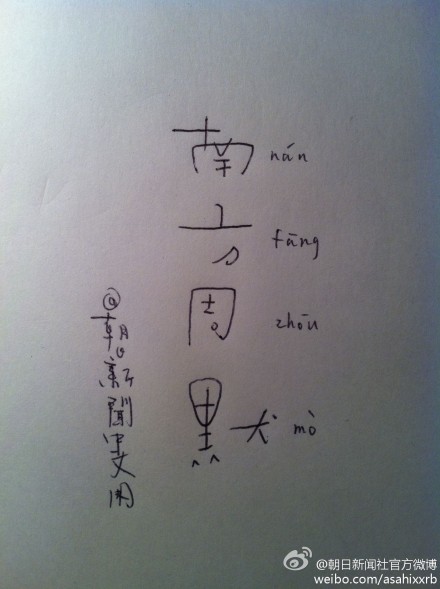 南 nán
方 fāng
周 zhōu
默 mò
@朝日新聞中文网
@朝日新闻社官方微博
weibo.com/asahixxrb